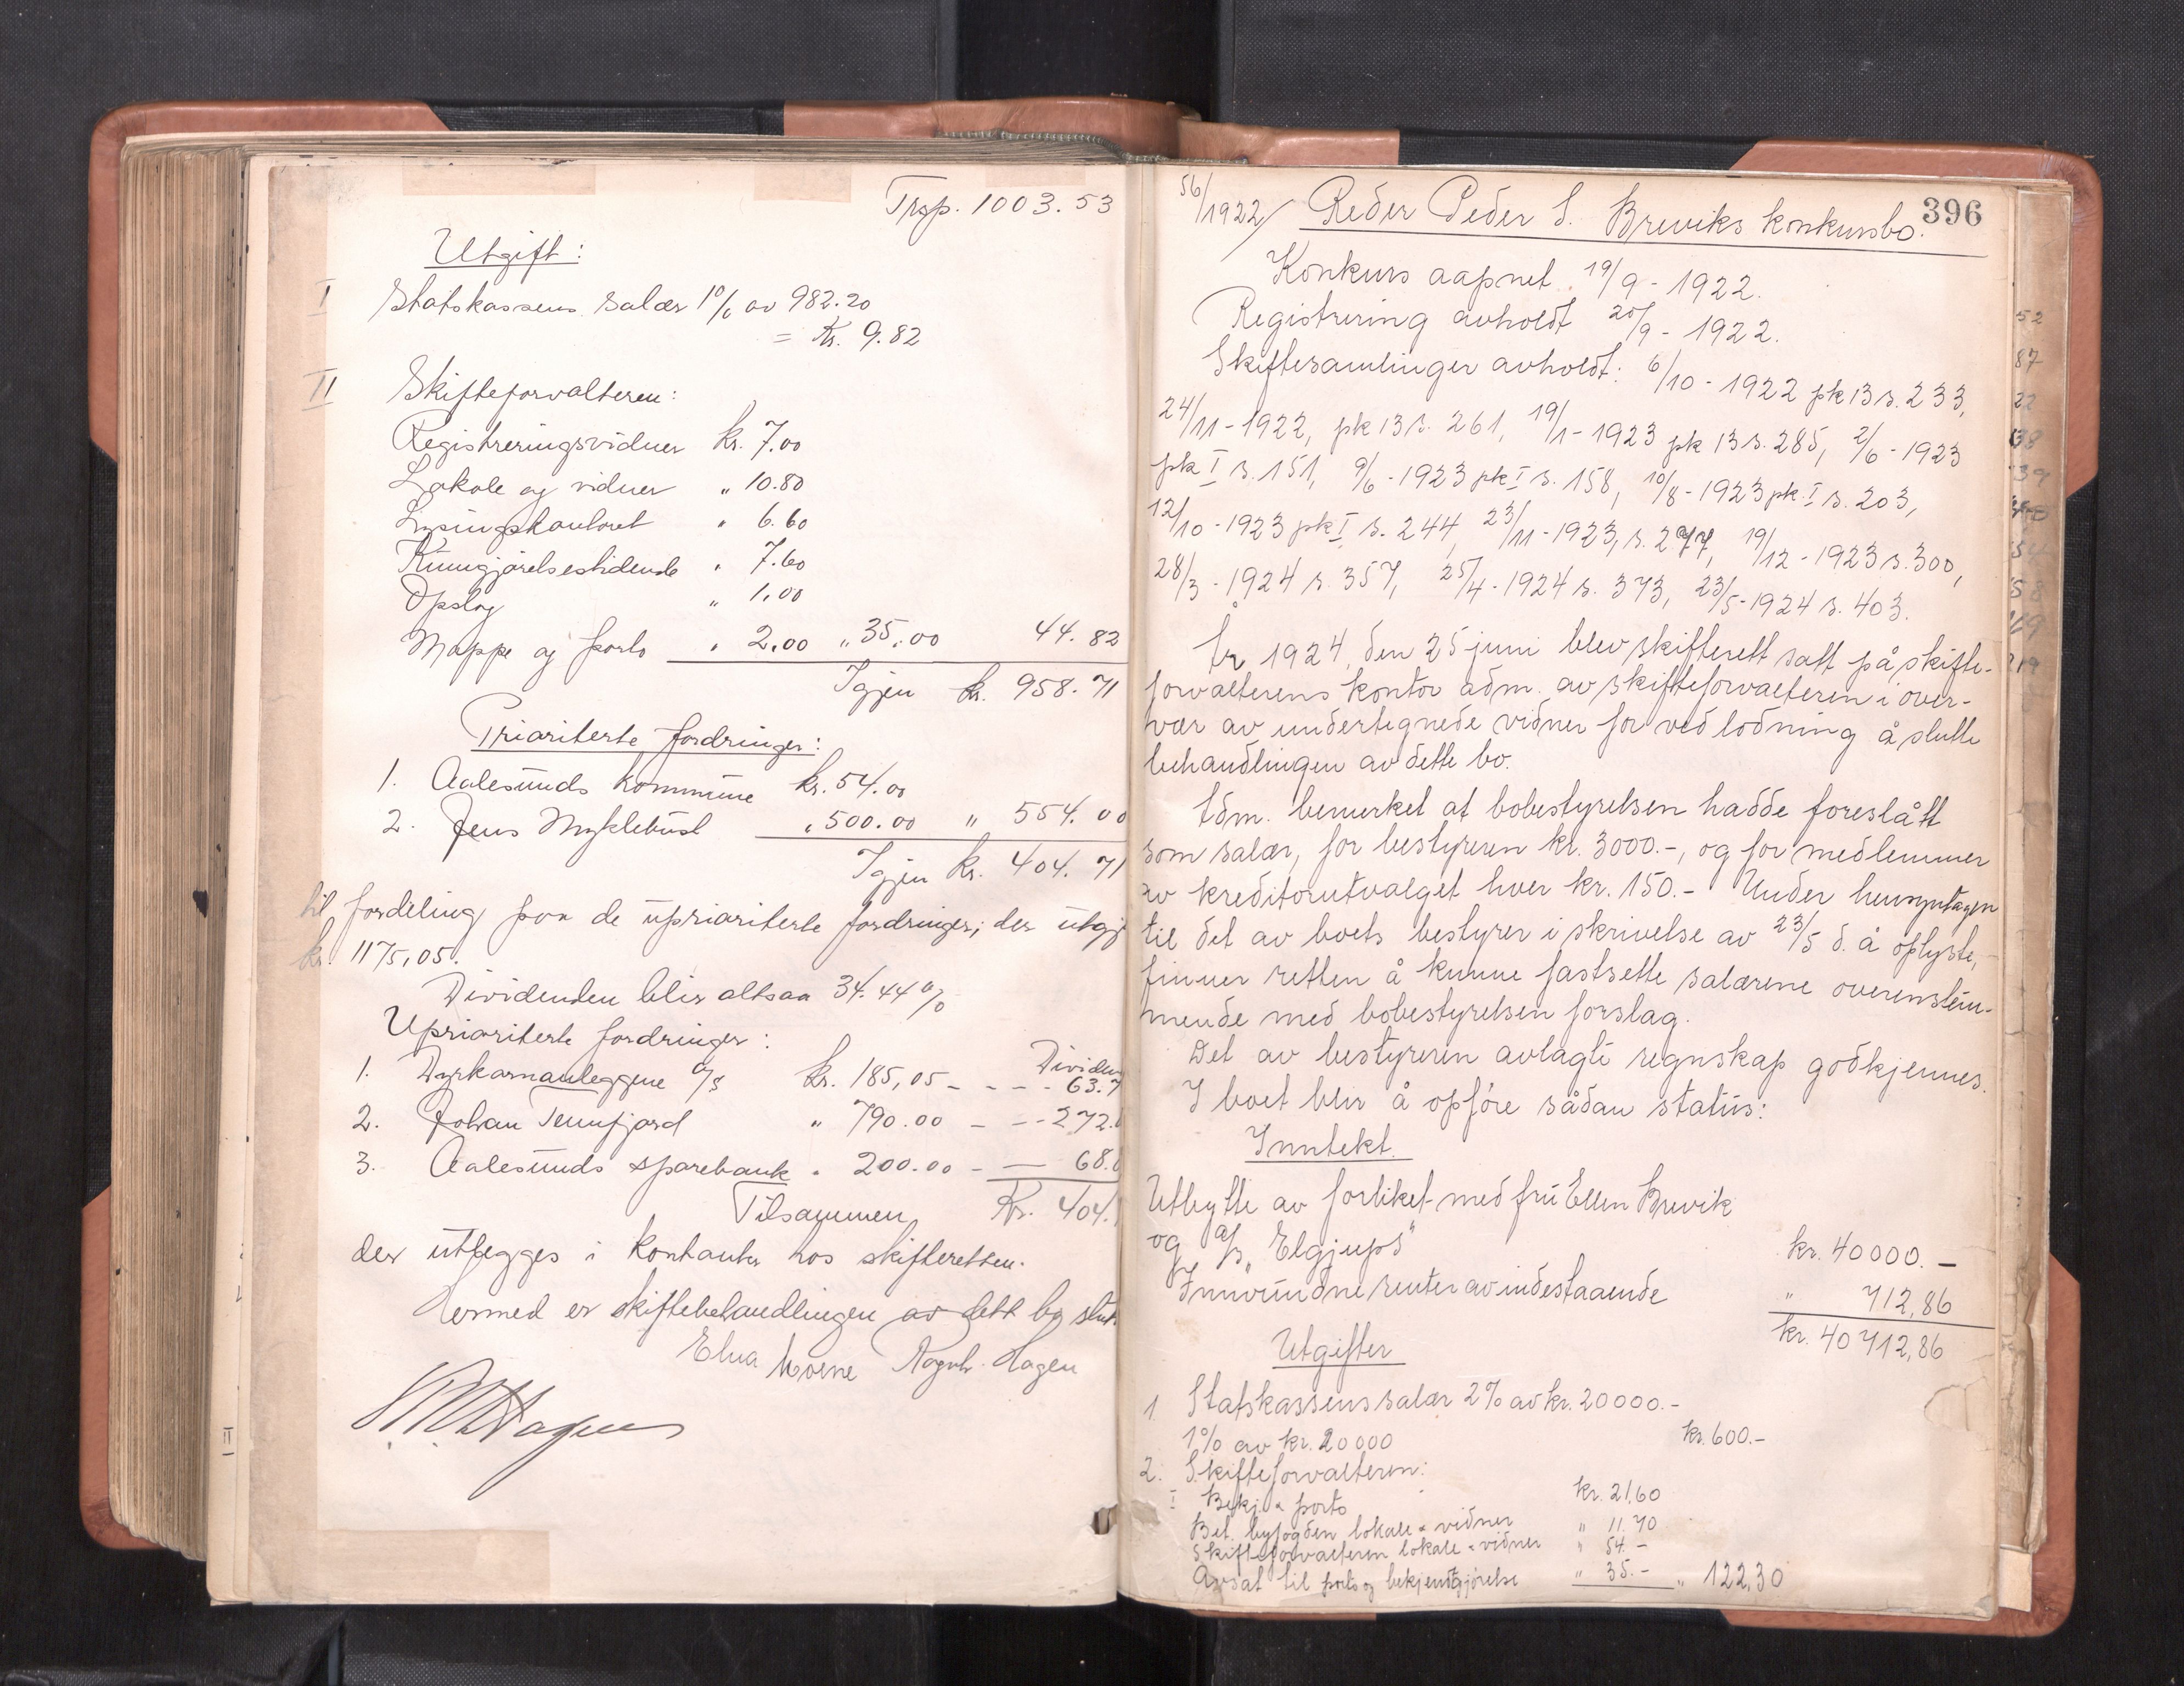 Trsp. 1003.53
Utgift:
I Statskassens salær 1% av 982.20
= Kr. 9.82
II Skifteforvalteren:
Registreringsvidner kr. 7.00
Lokale og vidner " 10.80
Lysingskontoret " 6.60
Kunngjørelsestidende " 7.60
Opslag " 1.00
Mappe og porto " 2.00 " 35.00 44.82
Igjen kr. 958.71
Prioriterte fordringer:
1. Aalesunds kommune kr. 54.00
2. Jens Myklebust " 500.00 " 554.00
Igjen kr. 404.71
til fordeling paa de uprioriterte fordringer, der utgj
kr. 1175,05.
Dividenden blir altsaa 34.44%
Uprioriterte fordringer:
Dividen
1. Dyrkornanleggene A/S kr. 185,05 - - - - 63.7
2. Johan Tennfjord " 790.00 - - - 272.
3. Aalesunds sparebank " 200.00 - — 68.
Tilsammen Kr. 404.
der utlegges i kontanter hos skifteretten.
Hermed er skiftebehandlingen av dette bo slut
Elna Hagen
II
396
56/1922 Reder Peder S. Breviks konkursbo.
Konkurs aapnet 19/9 - 1922.
Registrering avholdt 20/9 - 1922.
Skiftesamlinger avholdt: 6/10 - 1922 pk 13 s. 233,
24/11 - 1922, pk 13 s. 261, 19/1 - 1923 pk 13 s. 285, 2/6 - 1923
pk I s. 151, 9/6 - 1923 pk I s. 158, 10/8 - 1923 pk. I s. 203,
12/10 - 1923 pk I s. 244, 23/11 - 1923, s. 277, 19/12 - 1923 s. 300,
28/3 - 1924 s. 357, 25/4 - 1924 s. 373, 23/5 - 1924 s. 403.
År 1924, den 25 juni blev skifterett satt på skifte-
forvalterens kontor adm. av skifteforvalteren i over-
vær av undertegnede vidner for ved lodning å slutte
behandlingen av dette bo.
Adm. bemerket at bobestyrelsen hadde foreslått
som salær, for bestyreren kr. 3000.-, og for medlemmer
av kreditorutvalget hver kr. 150.- Under hensyntagen
til det av boets bestyrer i skrivelse av 23/5 d.å oplyste,
finner retten å kunne fastsette salærene overenstem-
mende med bobestyrelsen forslag.
Det av bestyreren avlagte regnskap godkjennes.
I boet blir å opføre sådan status:
Inntekt.
Utbytte av forliket med fru Ellen Brevik
og A/S "Elgjups" kr. 40000.-
Innvundne renter av indestaaende " 712,86
kr. 40712,86
Utgifter
1 Statskassens salær 2% av kr. 20000.-
1% av kr. 20000 kr. 600.-
2. Skifteforvalteren:
I Bekj. & porto kr. 21,60
Bet. byfogden lokale & vidner " 11.70
Skifteforvalteren lokale & vidner " 54.-
Avsat til porto og bekjendtgjørelse " 35.- " 122,30
52
87
22